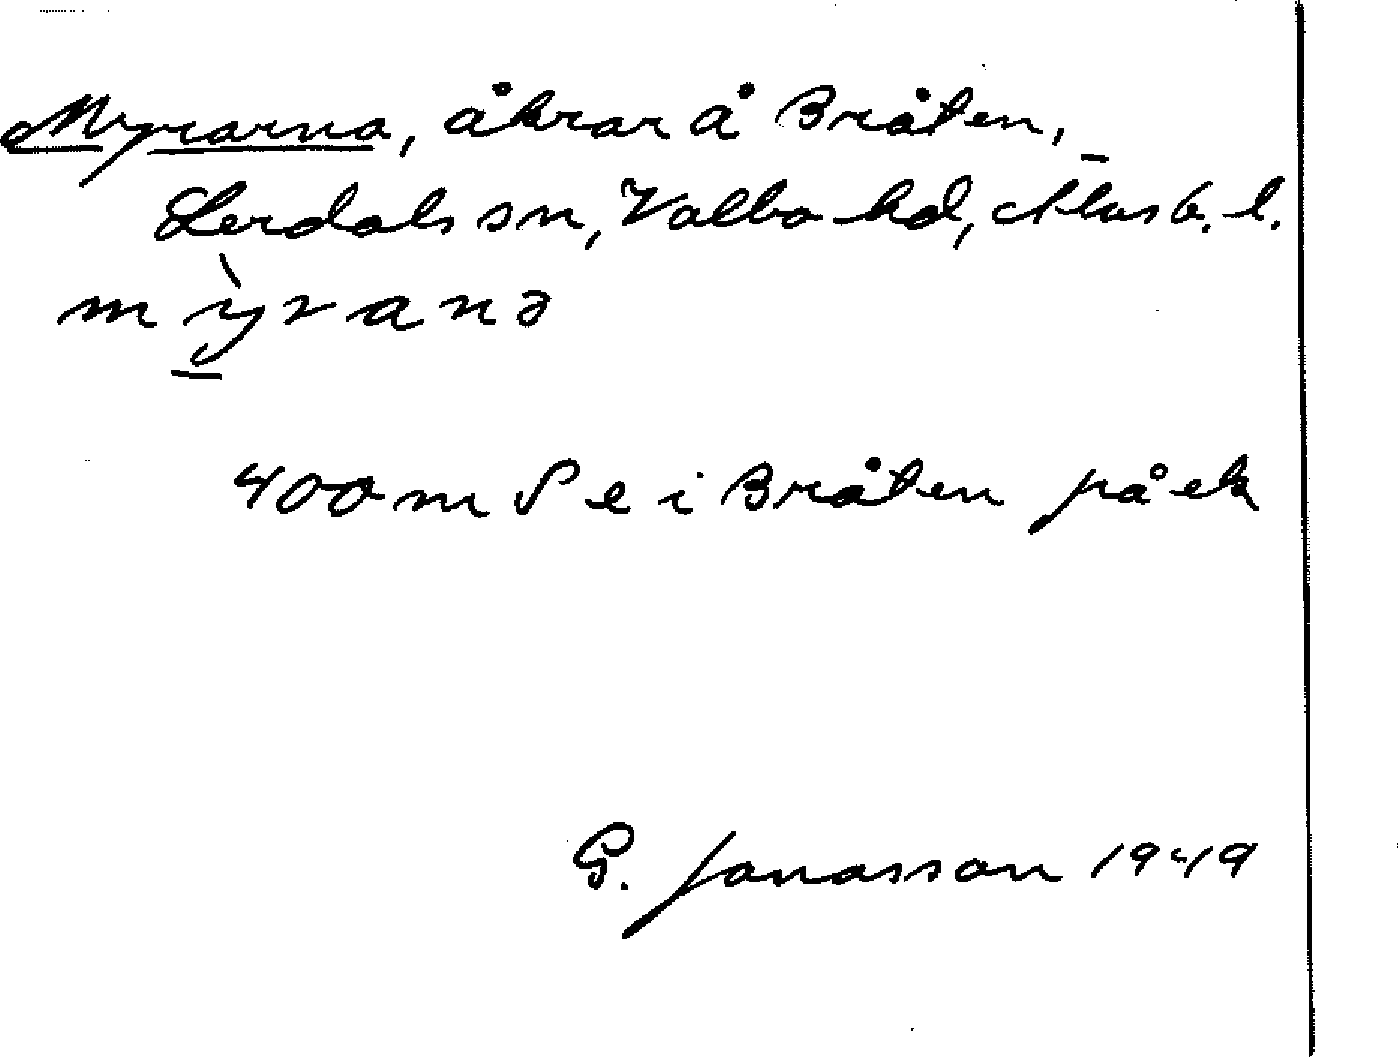 Myrarna, åkrar å Bråten,
Lerdals sn, Valbo hd, Älvsb. l.
mỳranə
400 m S e i Bråten på ek
G. Jonasson 1949